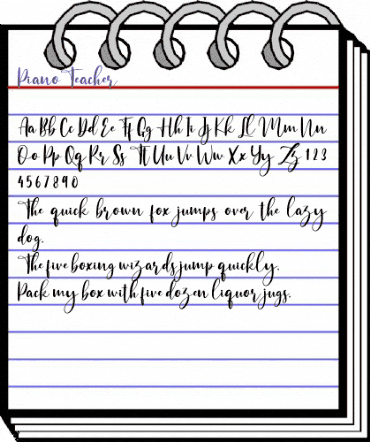 Piano Teacher
Aa Bb Cc Dd Ee Ff Gg Hh Ii Jj Kk Ll Mm Nn
Oo Pp Qq Rr Ss Tt Uu Vv Ww Xx Yy Zz 1 2 3
4 5 6 7 8 9 0
The quick brown fox jumps over the lazy
dog.
The five boxing wizards jump quickly.
Pack my box with five dozen liquor jugs.